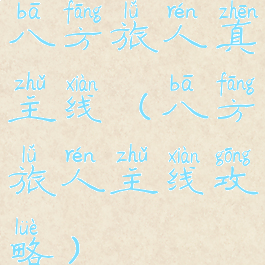 bā fāng lǚ rén zhēn
八方旅人真
zhǔ xiàn bā fāng
主线（八方
lǚ rén zhǔ xiàn gōng
旅人主线攻
lüè
略）